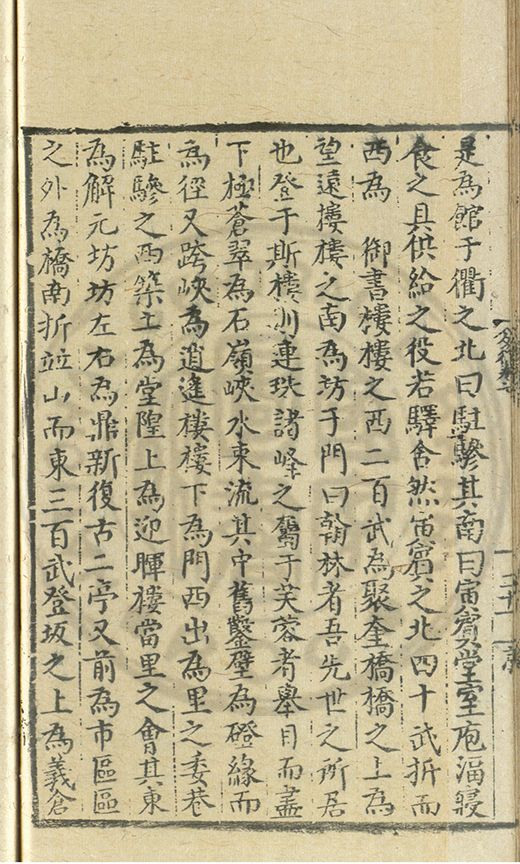 是為館于衢之北曰駐驂其南曰寅賓堂室庖湢寢
食之具供給之役若驛舍然寅賓之北四十武折而
西為 御書樓樓之西二百武為聚奎橋橋之上為
望遠樓樓之南為坊于門曰翰林者吾先世之所居
也登于斯樓則連珠諸峰之鶱于芙蓉者舉目而盡
下極蒼翠為石嶺峽水東流其中舊鑿壁為磴緣而
為徑又跨峽為逍遙樓樓下為門西出為里之委巷
駐驂之西築土為堂隍上為迎暉樓當里之會其東
為解元坊坊左右為鼎新復古二亭又前為市區區
之外為橋南折竝山而東三百武登坂之上為義倉